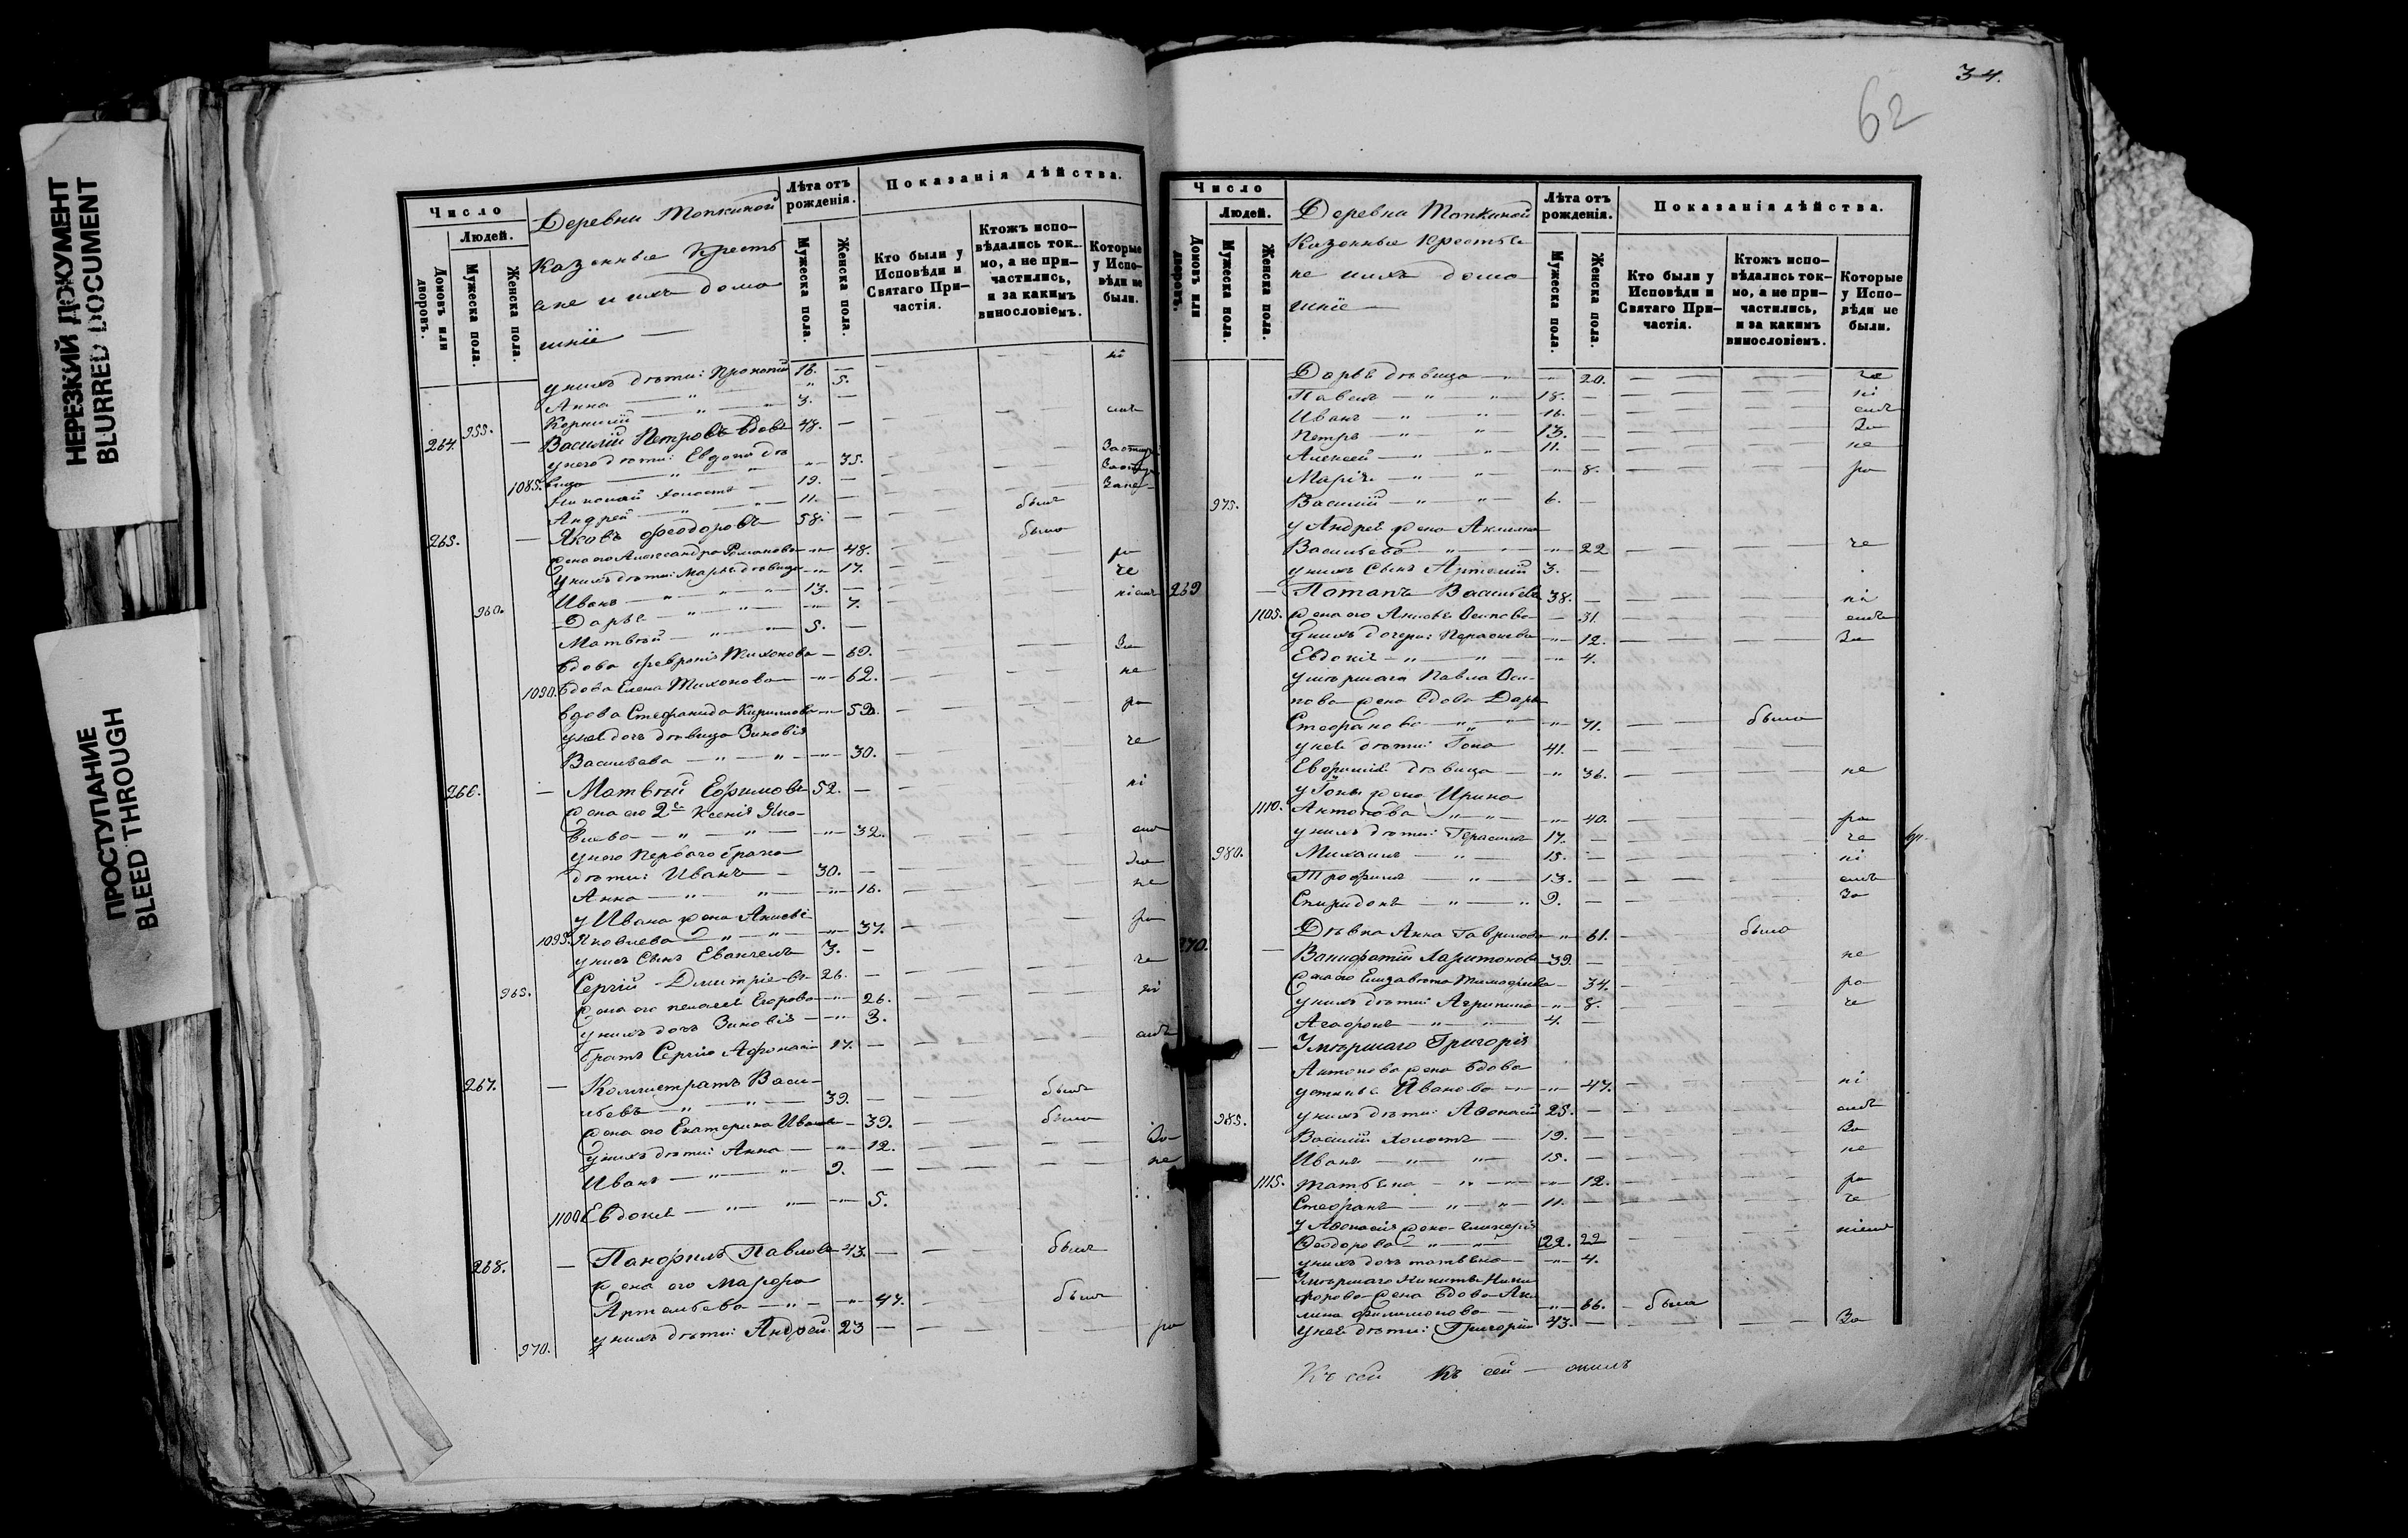 НЕРЕЗКИЙ ДОКУМЕНТ
BLURRED DOCUMENT
ПРОСТУПАНИЕ
BLEED THROUGH
Число
Людей.
Домовъ или дворовъ.
Мужеска пола.
Женска пола.
Деревни Топкиной
казенные кресть
яне и ихъ дома
шніе
Лѣта отъ рожденія.
Мужеска пола.
Женска пола.
Показанія дѣйства.
Кто были у Исповѣди и Святаго Причастія.
Ктожъ исповѣдались токмо, а не причастились, и за какимъ винословіемъ.
Которые у Исповѣди не были.
у нихъ дѣти: Прокопій 16. — ні
Анна — " — " 5.
955. Корнилій — " — " 3. —
264. — Василій Петровъ вдовъ 48. — емъ
у него дѣти: Евдокія дѣ
1085. вица — " — " 35.
Николай холостъ 19. —
Андрей — " — " 11. — За не
265. — Яковъ Феодоровъ 58. — былъ
жена его Александра Романова — " 48. была
у нихъ дѣти: Марья дѣвица — " 17. ра
960. Иванъ — " — " 13. — че
Дарья — " — " 7. ніемъ
Матвѣй — " — " 5. —
вдова Февронія Тихонова — 69. За
1090. вдова Елена Тихонова — " 62. не
вдова Стефанида Кириллова — " 59. ра
у нея дочь дѣвица Зиновія
Васильева — " — " 30. че
266. — Матвѣй Ефимовъ 52. — ні
жена его 2я Ксенія Яко-
влева — " — " 32. емъ
у него перваго брака
дѣти: Иванъ — 30. — За
Анна — " — " 16. не
у Ивана жена
1095. Яковлева — " — " 37. ра
у нихъ сынъ 3. —
965. Сергій Дмитріевъ 26. — че
жена его Пелагея Егорова — " 26. ні
у нихъ дочь Зиновія — " 3.
братъ Сергію Афонасій 17. — емъ
267. — Каллистратъ Васи-
льевъ — " — " 39. — былъ
жена его Екатерина Иванова — 39. была
у нихъ дѣти: Анна — " 12. За
Иванъ — " — " 9. — не
1100. Евдокія — " — " 5.
268. — Панфилъ Павловъ 43. — былъ
жена его Марфа
Артемьева — " — " 47.
970. у нихъ дѣти: Андрей 23 — ра
34.
62
Число
Людей.
Домовъ или дворовъ.
Мужеска пола.
Женска пола.
Деревна Топкиной
Казенные крестья
не ихъ дома
шніе
Лѣта отъ рожденія.
Мужеска пола.
Женска пола.
Показанія дѣйства.
Кто были у Исповѣди и Святаго Причастія.
Ктожъ исповѣдались токмо, а не причастились, и за какимъ винословіемъ.
Которые у Исповѣди не были.
Дарья дѣвица — " — 20. че
Павелъ — " — " 18. — ні
Иванъ — " — " 16. — емъ
Петръ — " — " 13. — За
Алексей — " — " 11. — не
Марія — " — " 8. ра
975. Василій — " — " 6. —
у Андрея жена Акилина
Васильева — " — " 22 че
у нихъ сынъ Артемій 3. —
269 — Потапъ Васильевъ 38. — ні
1105. жена его Осипова — 31. емъ
у нихъ дочери: Параскева — " 12. За
Евдокія — " — " 4.
умершаго Павла Оси-
пова жена вдова Дарья
Стефанова — " — " 71. была
у нея дѣти: Іона 41. —
дѣвица — " 36. не
у Іоны жена Ирина
1110. Антонова — " — 40. ра
у нихъ дѣти: Герасимъ 17. — че
980. Михаилъ — " 15. — ні
Трофимъ — " 13. — емъ
Спиридонъ — " — " 9. — За
Дѣвка Анна Гаврилова — " 61. была
270. — Вонифатій Харитоновъ 39. — не
жена его Елизавета Тимофеева — 34. ра
у нихъ дѣти: Агрипина — " 8. че
Агафонъ — " — " 4. —
— Умершаго Григорія
Антонова жена вдова
Устинья Иванова — " 47. ні
985. у нихъ дѣти: Афонасій 25. — емъ
Василій холостъ — 19. — За
Иванъ — " — " 15. — не
1115. Татьяна — " — " 12. ра
Стефанъ — " — " 11. — че
у Афонасія жена Гликерія
Феодорова — " — " 22. 22 ніемъ
у нихъ дочь Татьяна — " 4.
— Умершаго Никиты Ники
форова жена вдова Аку
лина Филимонова — " 66. — была
у нея дѣти: Григорій 43. — За
Къ сей Къ сей